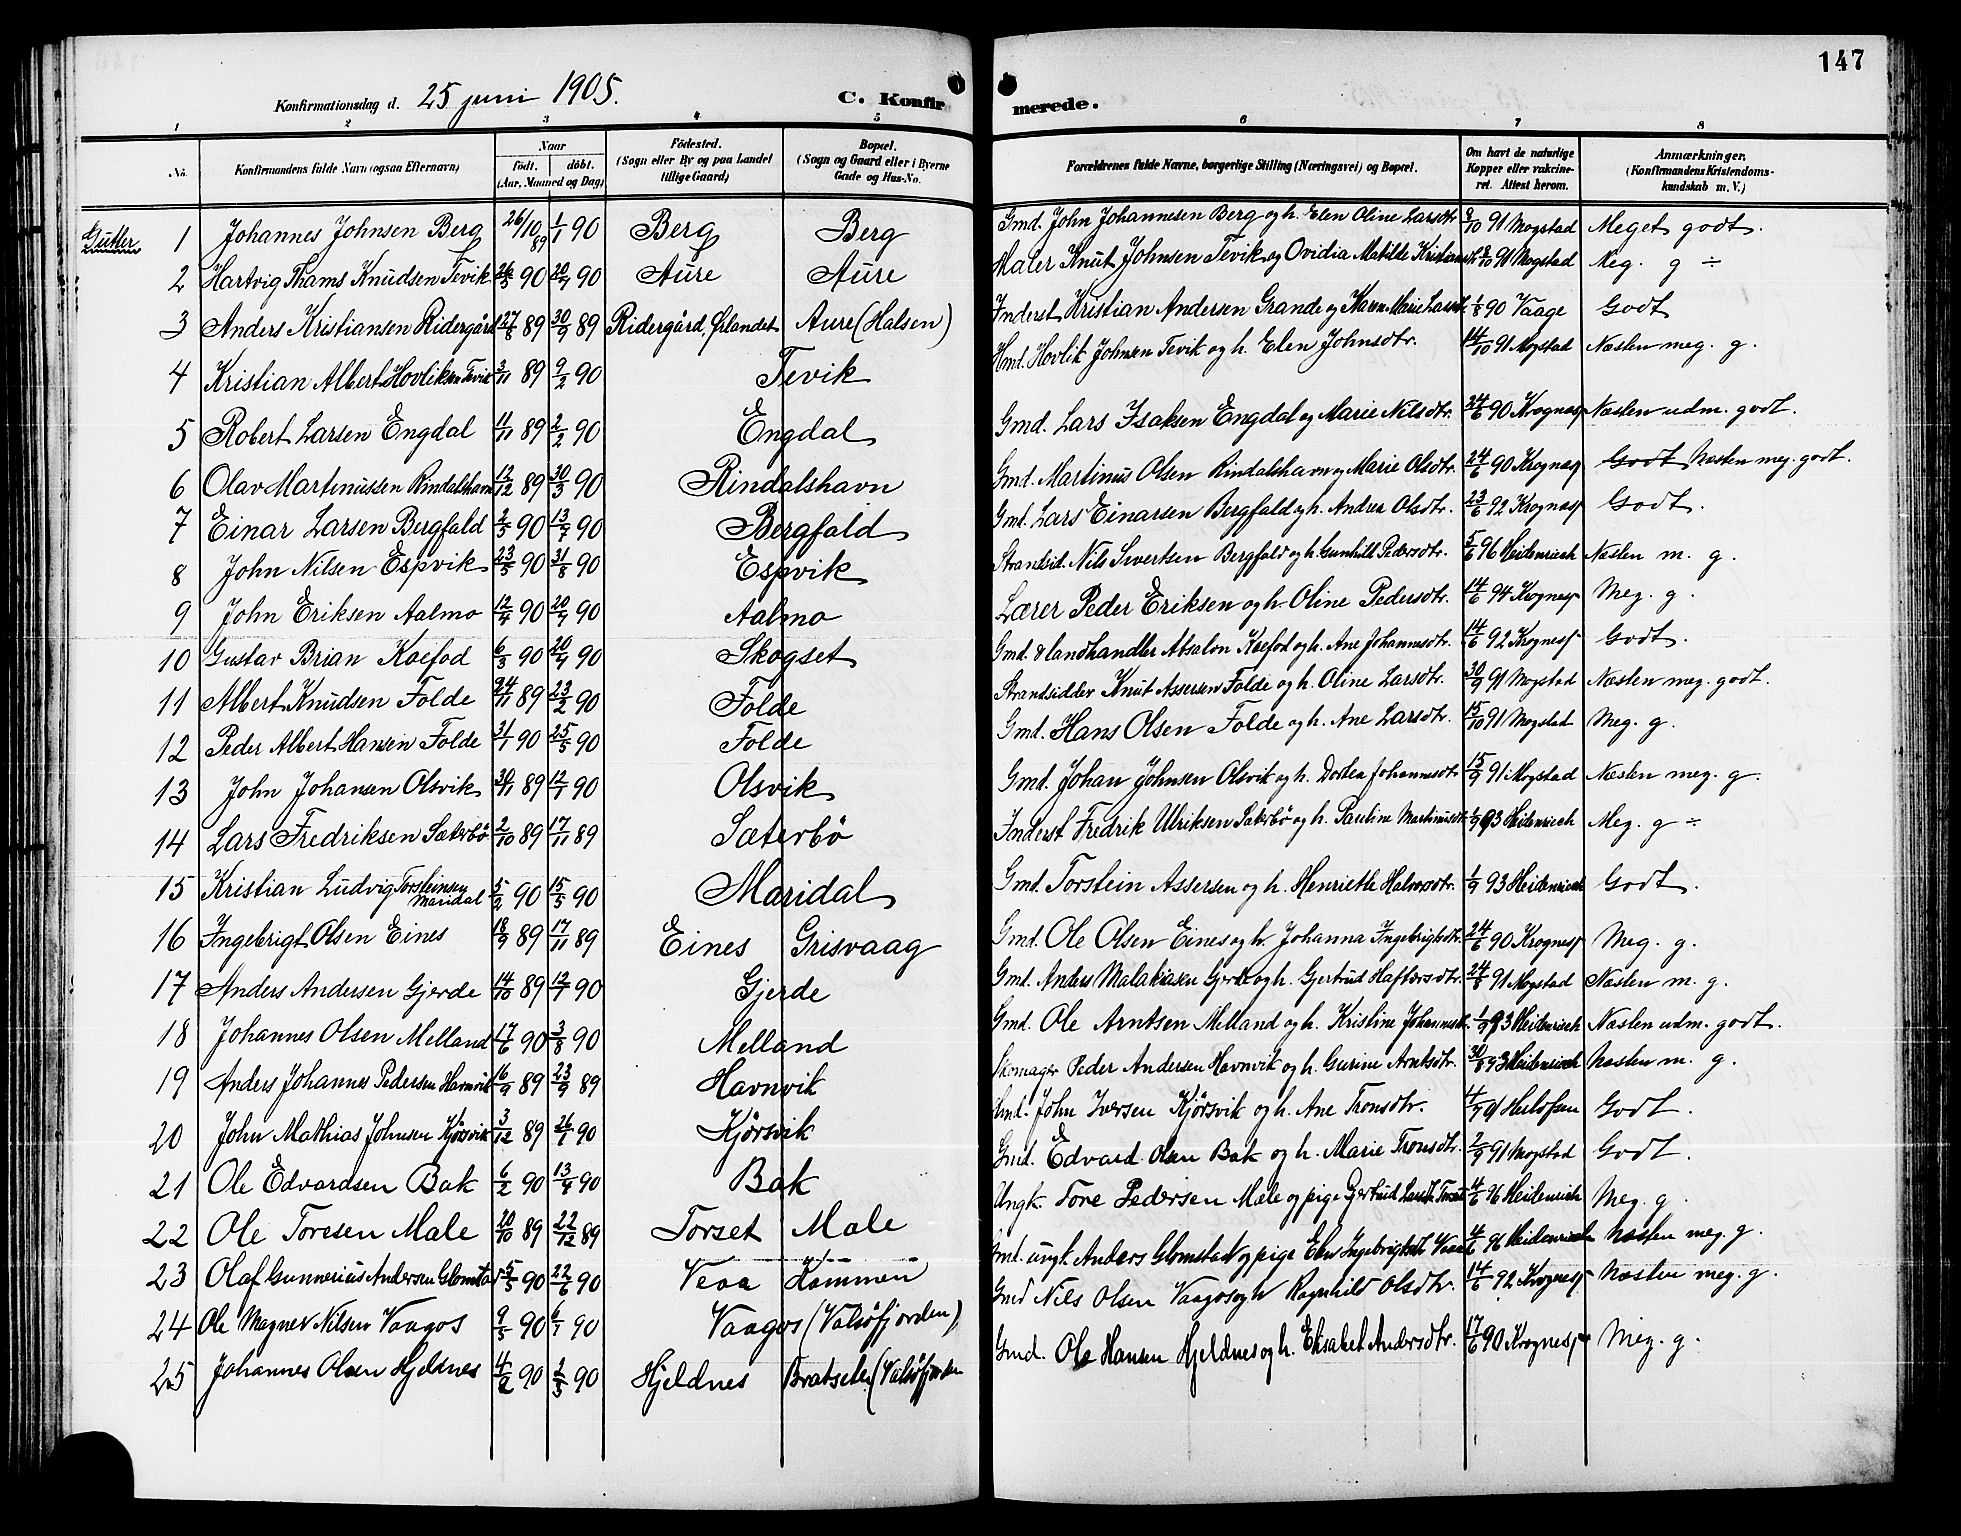 147
Konfirmationsdag d. 25 juni 1905. C. Konfirmerede.
1 2 3 4 5 6 7 8
No. Konfirmandens fulde Navn (ogsaa Efternavn) Naar født. døbt. (Aar, Maaned og Dag) Fødested. (Sogn eller By og paa Landet tillige Gaard) Bopæl. (Sogn og Gaard eller i Byerne Gade og Hus-No. Forældrenes fulde Navne, borgerlige Stilling (Næringsvei) og Bopæl. Om havt de naturlige Kopper eller vakcineret. Attest herom. Anmærkninger. (Konfirmandens Kristendomskundskab m. V.)
Gutter
1 Johannes Johnsen Berg 26/10 89 1/1 90 Berg Berg Gmd. John Johannesen Berg og h. Elen Oline Larsdtr 8/10 91 Mogstad Meget godt.
2 Hartvig Thams Knudsen Tevik 26/3 90 20/4 90 Aure Aure Maler Knut Johnsen Tevik og Ovidia Matilde 91 Mogstad Meg. g ÷
3 Anders Kristiansen Ridergård 27/8 89 30/9 89 Ridergård, Ørlandet Aure (Halsen) Inderst Kristian Andersen Grande og Karen Marie 1/8 90 Vaage Godt
4 Kristian Albert Hovliksen Tevik 3/11 89 9/2 90 Tevik Hmd. Hovlik Johnsen Tevik og h. Elen Johnsdtr. 14/10 91 Mogstad Næsten meg. g.
5 Robert Larsen Engdal 11/11 89 2/2 90 Engdal Gmd. Lars Isaksen Engdal og Marie Nilsdtr. 24/6 90 Krogness Næsten udm. godt.
6 Olav Martinussen Rindalshavn 12/12 89 30/3 90 Rindalshavn Gmd. Martinus Olsen Rindalshavn og Marie Olsdtr. 24/6 90 Krogness Godt Næsten meg. godt.
7 Einar Larsen Bergfald 2/5 90 13/7 90 Bergfald Gmd. Lars Einarsen Bergfald og h. Andrea Olsdtr. 23/6 92 Krogness Godt.
8 John Nilsen Espvik 23/5 90 31/8 90 Espvik Strandsid. Nils Sivertsen Bergfald og h. Gunhild Pedersdtr. 5/6 96 Heidenreich Næsten m. g.
9 John Eriksen Aalmo 12/4 90 20/4 90 Aalmo Lærer Peder Eriksen og h. Oline Pedersdtr. 14/6 94 Krogness Meg. g.
10 Gustav Brian Koefod 6/3 90 20/4 90 Skogset Gmd. & landhandler Absalon Koefod og h. Ane Johannesdtr. 14/6 92 Krogness Godt.
11 Albert Knudsen Folde 24/11 89 23/2 90 Folde Strandsidder Knut Assersen Folde og h. Oline Larsdtr. 30/9 91 Mogstad Næsten meg. godt.
12 Peder Albert Hansen Folde 31/1 90 25/5 90 Folde Gmd. Hans Olsen Folde og h. Ane Larsdtr. 15/10 91 Mogstad Meg. g.
13 John Johansen Olsvik 30/11 89 12/1 90 Olsvik Gmd. Johan Johnsen Olsvik og h. Dortea Johannesdtr 15/9 91 Mogstad Næsten meg. g.
14 Lars Fredriksen Sæterbö 2/10 89 17/11 89 Sæterbö Inderst Fredrik Ulriksen Sæterbö og h. Pauline Martinusdtr. 1/9 93 Heidenreich Meg. g ÷
15 Kristian Ludvig Torsteinsen Maridal 5/2 90 15/5 90 Maridal Gmd. Torstein Assersen og h. Henriette Halvorsdtr. 1/9 93 Heidenreich Godt.
16 Ingebrigt Olsen Eines 18/9 89 17/11 89 Eines Grisvaag Gmd. Ole Olsen Eines og h. Johanna Ingebrigtsdtr. 24/6 90 Krogness Meg. g.
17 Anders Andersen Gjerde 14/10 89 12/1 90 Gjerde Gmd. Anders Malakiasen Gjerde og h. Gjertrud Haftorsdtr. 24/8 91 Mogstad Næsten m. g.
18 Johannes Olsen Melland 17/6 90 3/8 90 Melland Gmd. Ole Arntsen Melland og h. Kristine Johannesdt. 1/9 93 Heidenreich Næsten udm. godt.
19 Anders Johannes Pedersen Havnvik 16/9 89 23/9 89 Havnvik Skomager Peder Andersen Havnvik og h. Gurine Arntsdtr. 30/8 93 Heidenreich Næsten m. g.
20 John Mathias Johnsen Kjörsvik 3/12 89 26/1 90 Kjörsvik Hmd. John Iversen Kjörsvik og h. Ane Tronsdtr. Godt.
21 Ole Edvardsen Bak 6/2 90 13/4 90 Bak Gmd. Edvard Olsen Bak og h. Marie Tronsdtr. 2/9 91 Mogstad Godt.
22 Ole Toresen Male 20/10 89 22/12 89 Torset Male Ungk. Tore Pedersen Male og pige Gjertrud 4/6 96 Heidenreich Meg. g.
23 Olaf Gunnerius Andersen Glomstad 5/5 90 22/6 90 Veaa Hammen Gmd. ungk. Anders Glomstad og pige Elen Ingebrigtsdt 4/6 96 Heidenreich Næsten meg. g.
24 Ole Magner Nilsen Vaagos 9/5 90 6/7 90 Vaagos (Valsöfjorden) Gmd Nils Olsen Vaagos og h Ragnhild Olsdtr. 14/6 92 Krogness Næsten meg. g.
25 Johannes Olsen Hjeldnes 4/2 90 2/3 90 Hjeldnes Bratseter (Valsöfjorden Gmd. Ole Hansen Hjeldnes og h. Elisabet Andersdtr. 17/6 90 Krogness Meg. g.